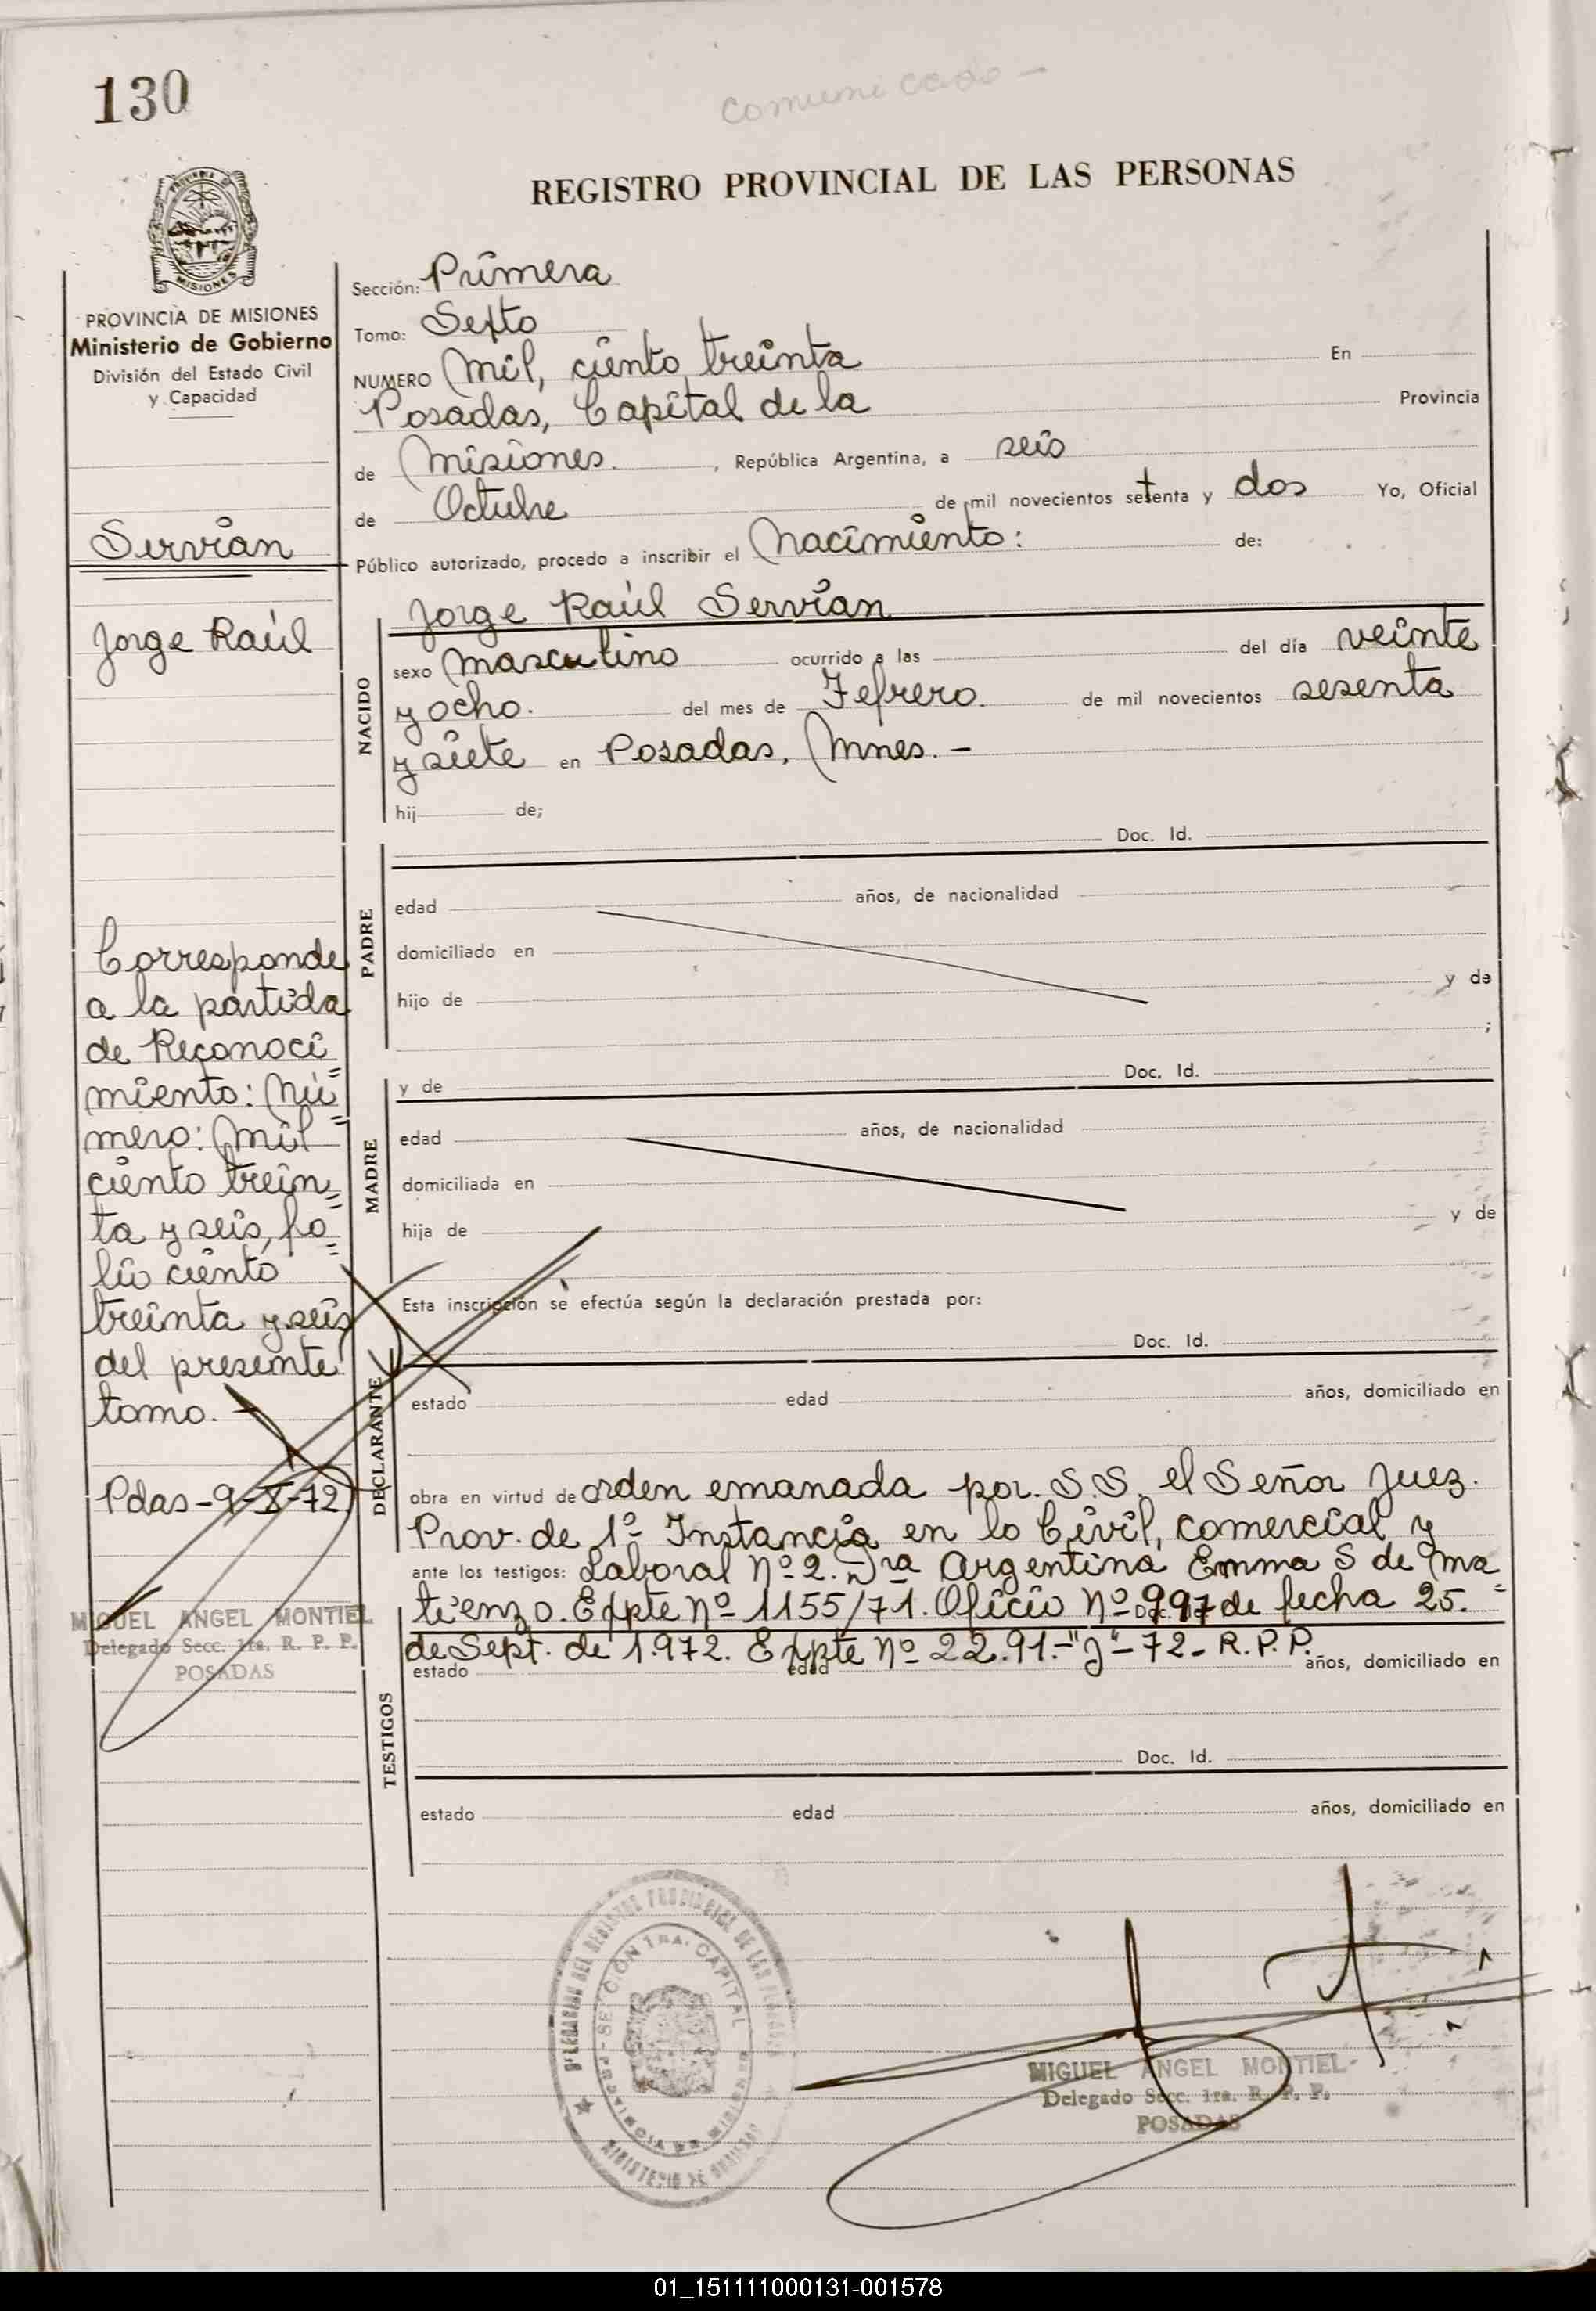 130
Comunicado -
REGISTRO PROVINCIAL DE LAS PERSONAS
MISIONES
PROVINCIA DE MISIONES
Ministerio de Gobierno
División del Estado Civil
y Capacidad
Servian
Jorge Raúl
Sección: Primera
Tomo: Sexto
NUMERO Mil, ciento treinta En
Posadas, Capital de la Provincia
de Misiones. , República Argentina, a seis
de Octubre de mil novecientos setenta y dos Yo, Oficial
Público autorizado, procedo a inscribir el Nacimiento: de:
NACIDO
Jorge Raúl Servian
sexo masculino ocurrido a las del día veinte
y ocho. del mes de Febrero. de mil novecientos sesenta
y siete en Posadas, Mnes. -
hij de;
Doc. Id.
PADRE
edad años, de nacionalidad
domiciliado en
hijo de y de
;
MADRE
y de Doc. Id.
edad años, de nacionalidad
domiciliada en
hija de y de
Corresponde
a la partida
de Reconoci=
miento: Nú=
mero: Mil
ciento trein=
ta y seis, fo=
lio ciento
treinta y seis
del presente
tomo. -
Pdas-9-X-72
MIGUEL ANGEL MONTIEL
Delegado Secc. 1ra. R. P. P.
POSADAS
Esta inscripción se efectúa según la declaración prestada por:
Doc. Id.
DECLARANTE
estado edad años, domiciliado en
obra en virtud de orden emanada por. S.S. el Señor Juez.
Prov. de 1º Instancia en lo Civil, comercial y
ante los testigos: Laboral Nº 2. Dra Argentina Emma S de Ma=
tienzo. Expte Nº 1155/71. Oficio Nº 997 de fecha 25.
de Sept. de 1.972. Expte Nº 22.91.-"J"-72- R.P.P.
TESTIGOS
estado edad años, domiciliado en
Doc. Id.
estado edad años, domiciliado en
DELEGACION DEL REGISTRO PROVINCIAL DE LAS PERSONAS
SECCION 1RA. CAPITAL
PROVINCIA DE MISIONES
MINISTERIO DE GOBIERNO
MIGUEL ANGEL MONTIEL
Delegado Secc. 1ra. R. P. P.
POSADAS
01_151111000131-001578